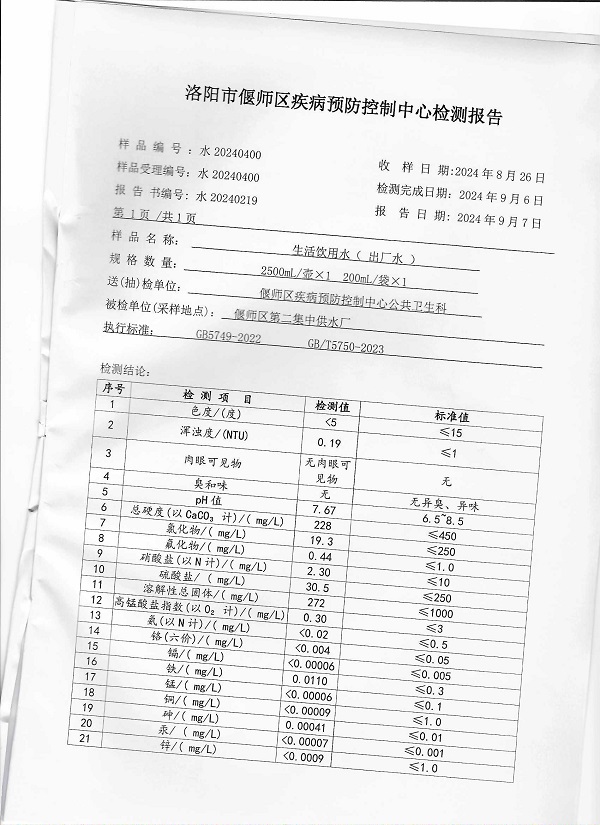 洛阳市偃师区疾病预防控制中心检测报告
样 品 编 号：水 20240400
收 样 日 期:2024 年 8 月 26 日
样品受理编号：水 20240400
检测完成日期：2024 年 9 月 6 日
报 告 书编号：水 20240219
报 告 日 期：2024 年 9 月 7 日
第 1 页 /共 1 页
样 品 名 称： 生活饮用水（ 出厂水 ）
规 格 数 量： 2500mL/壶×1 200mL/袋×1
送(抽)检单位： 偃师区疾病预防控制中心公共卫生科
被检单位(采样地点)： 偃师区第二集中供水厂
执行标准： GB5749-2022 GB/T5750-2023
检测结论：
序号 检 测 项 目 检测值 标准值
1 色度/(度) <5 ≤15
2 浑浊度/(NTU) 0.19 ≤1
3 肉眼可见物 无肉眼可见物 无
4 臭和味 无 无异臭、异味
5 pH 值 7.67 6.5~8.5
6 总硬度(以 CaCO₃ 计)/( mg/L) 228 ≤450
7 氯化物/( mg/L) 19.3 ≤250
8 氟化物/( mg/L) 0.44 ≤1.0
9 硝酸盐(以 N 计)/( mg/L) 2.30 ≤10
10 硫酸盐/ ( mg/L) 30.5 ≤250
11 溶解性总固体/( mg/L) 272 ≤1000
12 高锰酸盐指数(以 O₂ 计)/( mg/L) 0.30 ≤3
13 氨(以 N 计)/( mg/L) <0.02 ≤0.5
14 铬(六价)/( mg/L) <0.004 ≤0.05
15 镉/( mg/L) <0.00006 ≤0.005
16 铁/( mg/L) 0.0110 ≤0.3
17 锰/( mg/L) <0.00006 ≤0.1
18 铜/( mg/L) <0.00009 ≤1.0
19 砷/( mg/L) 0.00041 ≤0.01
20 汞/ ( mg/L) <0.00007 ≤0.001
21 锌/( mg/L) <0.0009 ≤1.0